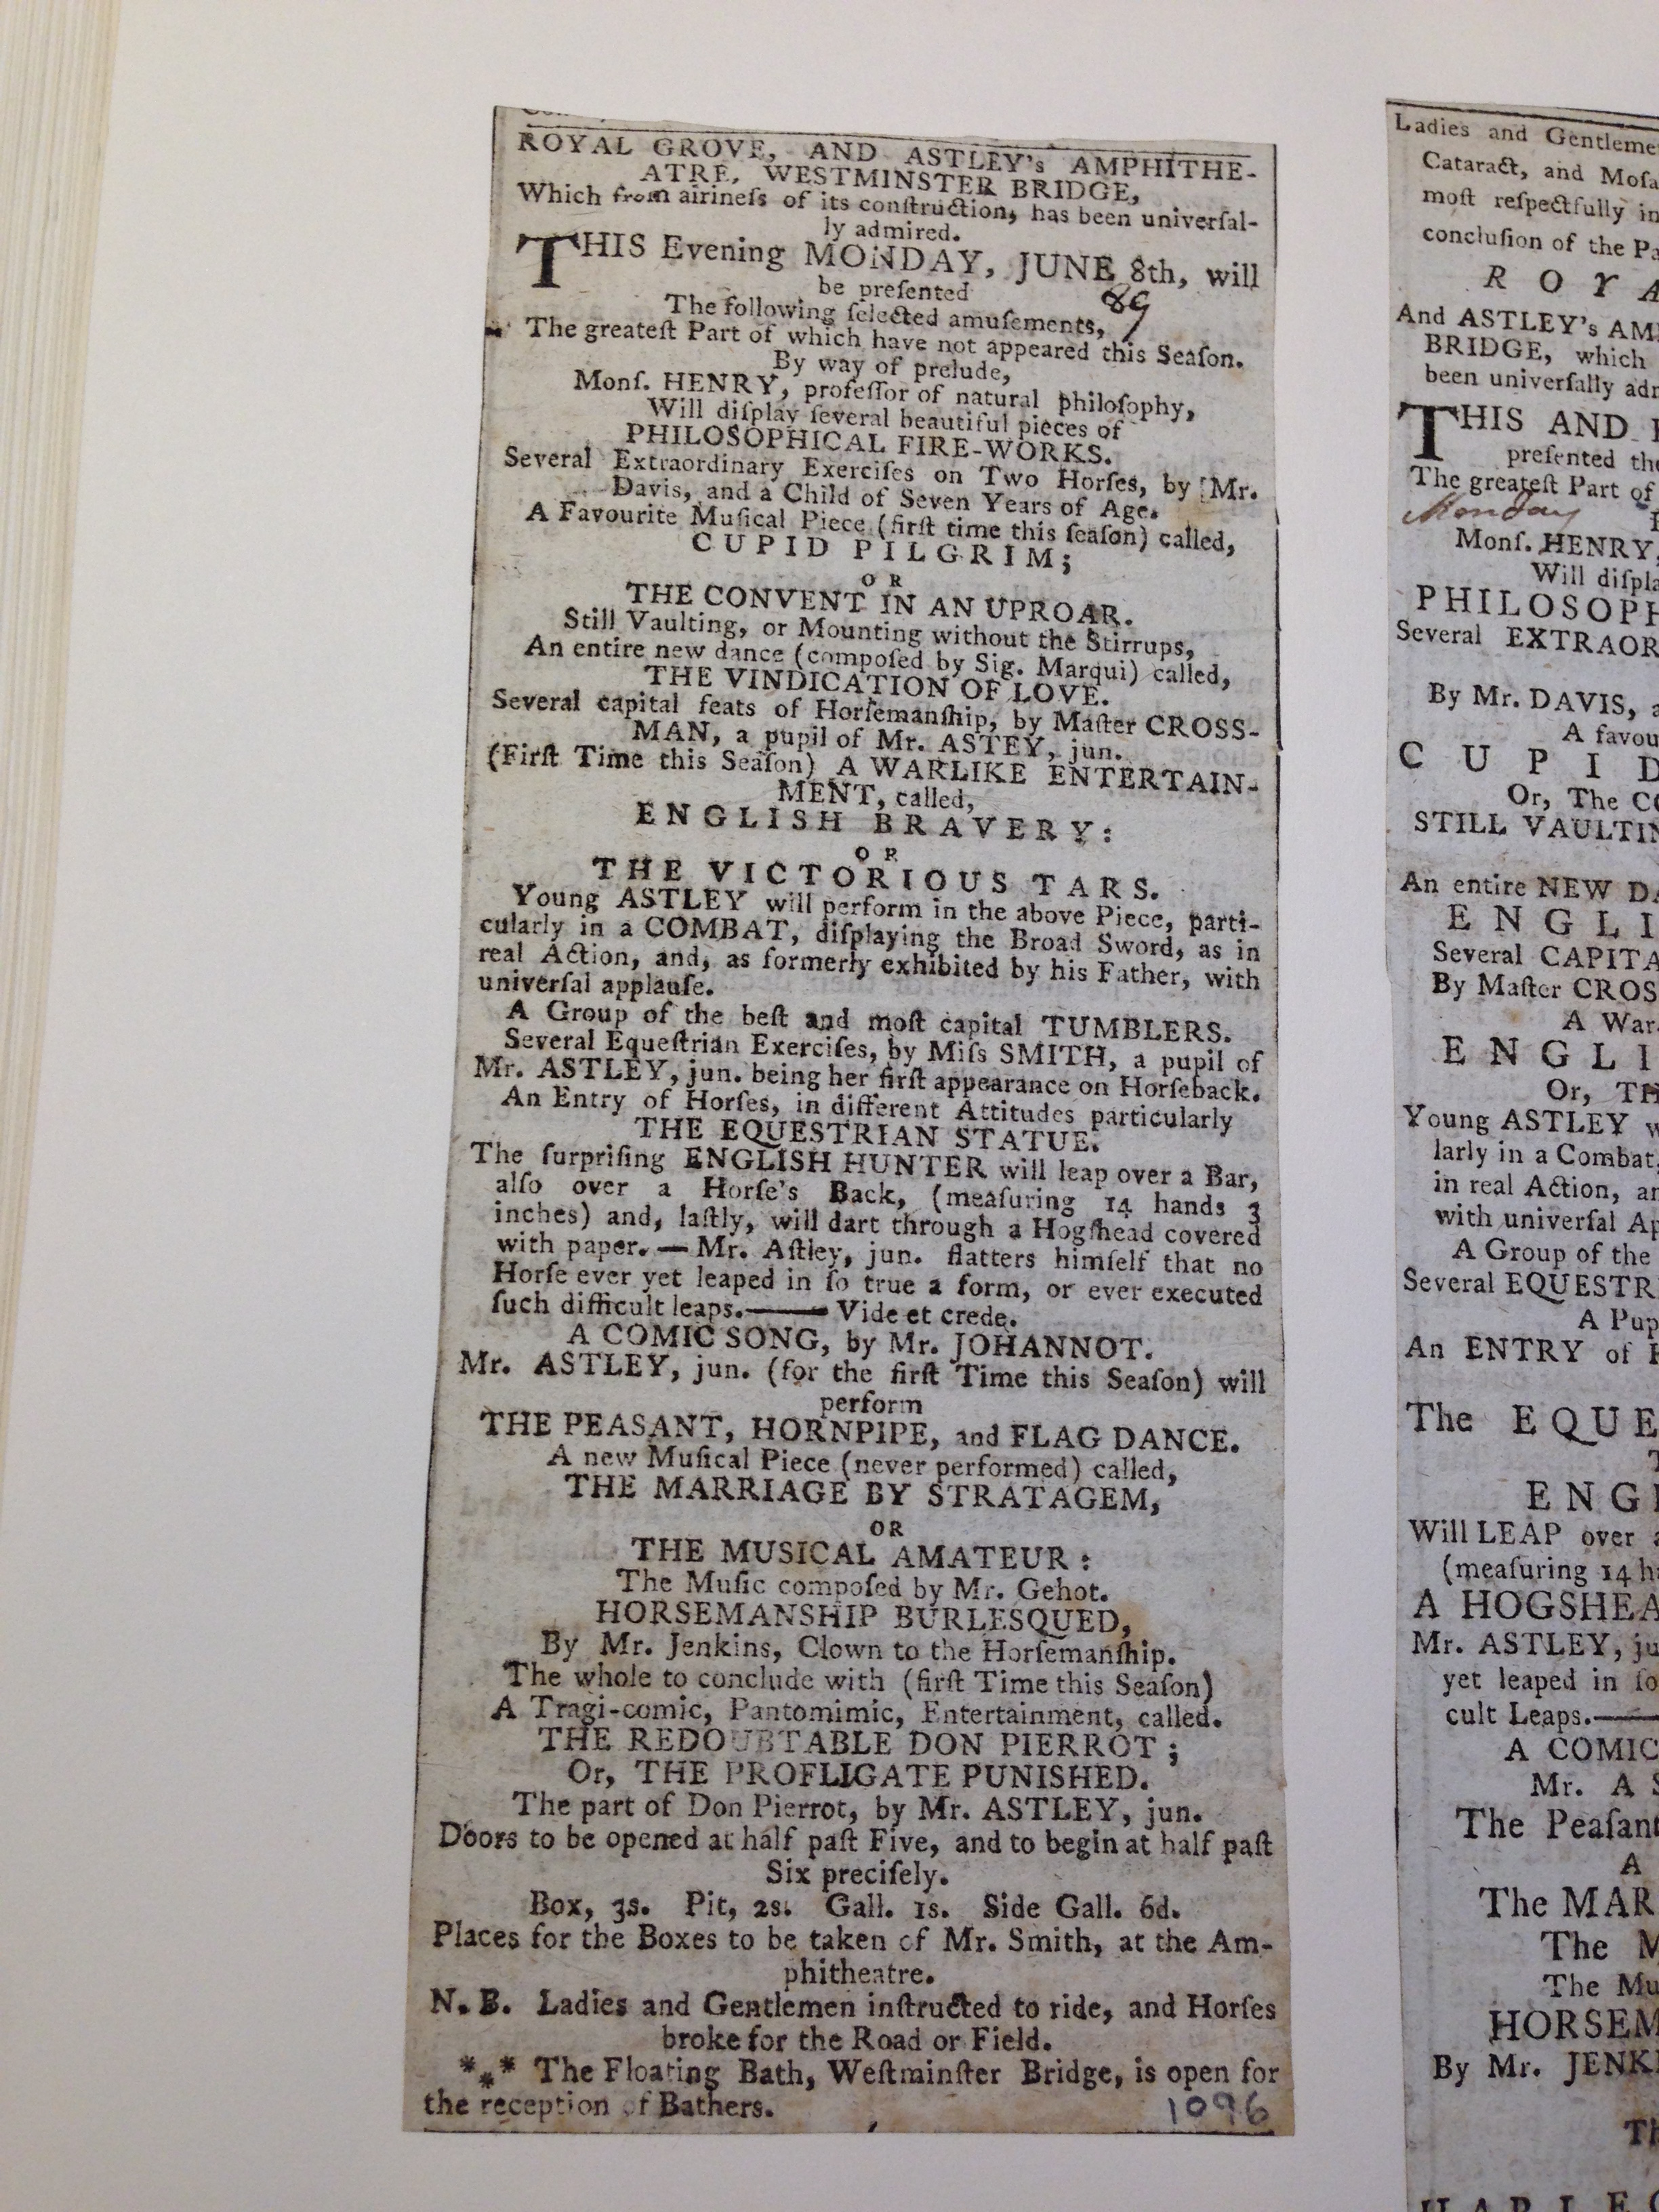 ROYAL GROVE, AND ASTLEY's AMPHITHE-
ATRE, WESTMINSTER BRIDGE,
Which from airineſs of its conſtruction, has been univerſal-
ly admired.
THIS Evening MONDAY, JUNE 8th, will
be preſented
89
The following ſelected amuſements,
The greateſt Part of which have not appeared this Seaſon.
By way of prelude,
Monſ. HENRY, profeſſor of natural philoſophy,
Will diſplay ſeveral beautiful pieces of
PHILOSOPHICAL FIRE-WORKS.
Several Extraordinary Exerciſes on Two Horſes, by Mr.
Davis, and a Child of Seven Years of Age.
A Favourite Muſical Piece (firſt time this ſeaſon) called,
CUPID PILGRIM;
OR
THE CONVENT IN AN UPROAR.
Still Vaulting, or Mounting without the Stirrups,
An entire new dance (compoſed by Sig. Marqui) called,
THE VINDICATION OF LOVE.
Several capital feats of Horſemanſhip, by Maſter CROSS-
MAN, a pupil of Mr. ASTEY, jun.
(Firſt Time this Seaſon) A WARLIKE ENTERTAIN-
MENT, called,
ENGLISH BRAVERY:
OR
THE VICTORIOUS TARS.
Young ASTLEY will perform in the above Piece, parti-
cularly in a COMBAT, diſplaying the Broad Sword, as in
real Action, and, as formerly exhibited by his Father, with
univerſal applauſe.
A Group of the beſt and moſt capital TUMBLERS.
Several Equeſtrian Exerciſes, by Miſs SMITH, a pupil of
Mr. ASTLEY, jun. being her firſt appearance on Horſeback.
An Entry of Horſes, in different Attitudes particularly
THE EQUESTRIAN STATUE.
The ſurpriſing ENGLISH HUNTER will leap over a Bar,
alſo over a Horſe's Back, (meaſuring 14 hands 3
inches) and, laſtly, will dart through a Hogſhead covered
with paper.—Mr. Aſtley, jun. flatters himſelf that no
Horſe ever yet leaped in ſo true a form, or ever executed
ſuch difficult leaps.——Vide et crede.
A COMIC SONG, by Mr. JOHANNOT.
Mr. ASTLEY, jun. (for the firſt Time this Seaſon) will
perform
THE PEASANT, HORNPIPE, and FLAG DANCE.
A new Muſical Piece (never performed) called,
THE MARRIAGE BY STRATAGEM,
OR
THE MUSICAL AMATEUR:
The Muſic compoſed by Mr. Gehot.
HORSEMANSHIP BURLESQUED,
By Mr. Jenkins, Clown to the Horſemanſhip.
The whole to conclude with (firſt Time this Seaſon)
A Tragi-comic, Pantomimic, Entertainment, called.
THE REDOUBTABLE DON PIERROT;
Or, THE PROFLIGATE PUNISHED.
The part of Don Pierrot, by Mr. ASTLEY, jun.
Doors to be opened at half paſt Five, and to begin at half paſt
Six preciſely.
Box, 3s. Pit, 2s. Gall. 1s. Side Gall. 6d.
Places for the Boxes to be taken of Mr. Smith, at the Am-
phitheatre.
N. B. Ladies and Gentlemen inſtructed to ride, and Horſes
broke for the Road or Field.
*⁎* The Floating Bath, Weſtminſter Bridge, is open for
the reception of Bathers.
1096
Ladies and Gentleme
Cataract, and Moſa
moſt reſpectfully in
concluſion of the Pa
ROYA
And ASTLEY's AM
BRIDGE, which
been univerſally adm
THIS AND
preſented the
The greateſt Part of
Monday
Monſ. HENRY,
Will diſpla
PHILOSOPH
Several EXTRAOR
By Mr. DAVIS, a
A favou
CUPID
Or, The CO
STILL VAULTIN
An entire NEW DA
ENGLI
Several CAPITA
By Maſter CROS
A War
ENGLI
Or, TH
Young ASTLEY w
larly in a Combat,
in real Action, an
with univerſal Ap
A Group of the
Several EQUESTR
A Pup
An ENTRY of H
The EQUE
T
ENGL
Will LEAP over a
(meaſuring 14 h
A HOGSHEA
Mr. ASTLEY, ju
yet leaped in ſo
cult Leaps.——
A COMIC
Mr. A S
The Peaſant
A
The MAR
The M
The Mu
HORSEM
By Mr. JENK
Th
HARLEQ